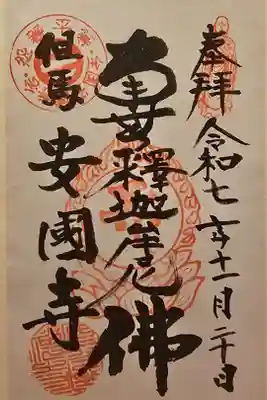 奉拝
令和七年十一月二十日
南無釋迦牟尼佛
但馬
安國寺